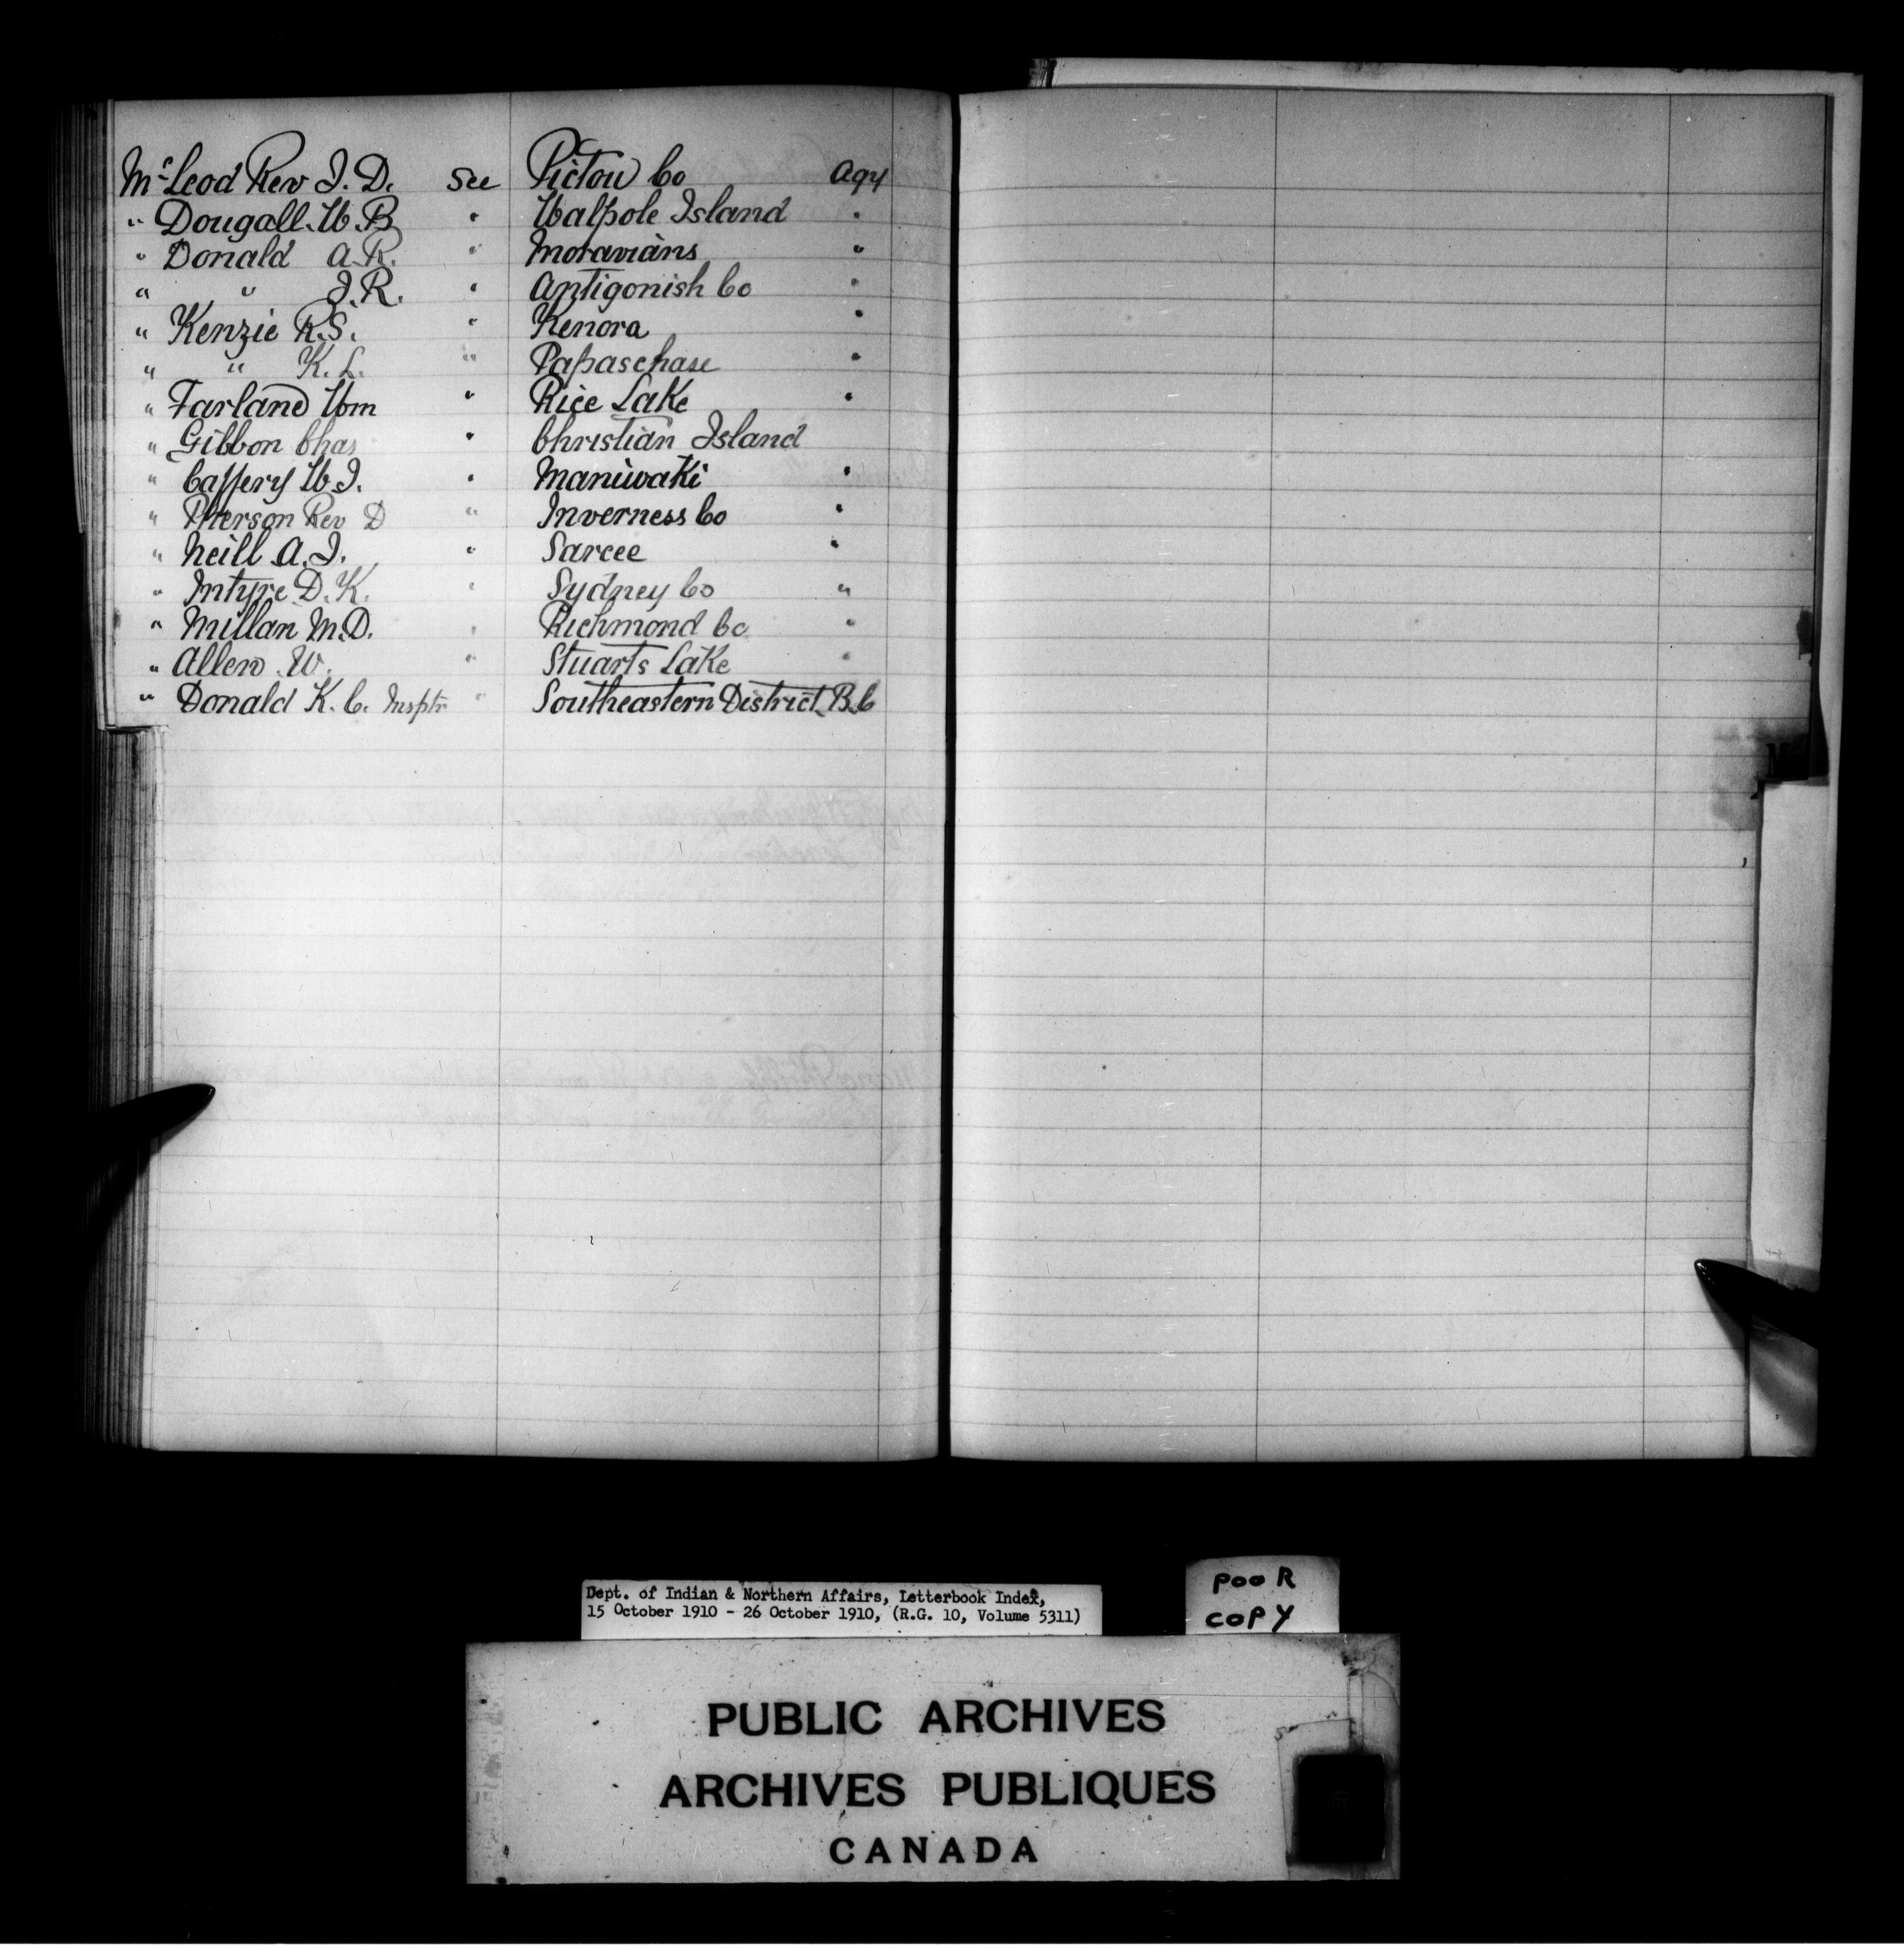 McLeod Rev J. D. See Pictou Co Agy
" Dougall. W. B " Walpole Island "
" Donald A. R. " Moravians "
" " J. R. " Antigonish Co "
" Kenzie R. S. " Kenora "
" " K. L. " Papaschase "
" Farland Wm " Rice Lake "
" Gibbon Chas " Christian Island
" Caffery W. J. " Maniwaki "
" Pherson Rev D " Inverness Co "
" Neill A. J. " Sarcee "
" Intyre D. K. " Sydney Co "
" Millan M. D. " Richmond Co "
" Allen. W. " Stuarts Lake "
" Donald K. C. Insptr " Southeastern District. B. C
Dept. of Indian & Northern Affairs, Letterbook Index,
15 October 1910 - 26 October 1910, (R.G. 10, Volume 5311)
POOR
COPY
PUBLIC ARCHIVES
ARCHIVES PUBLIQUES
CANADA